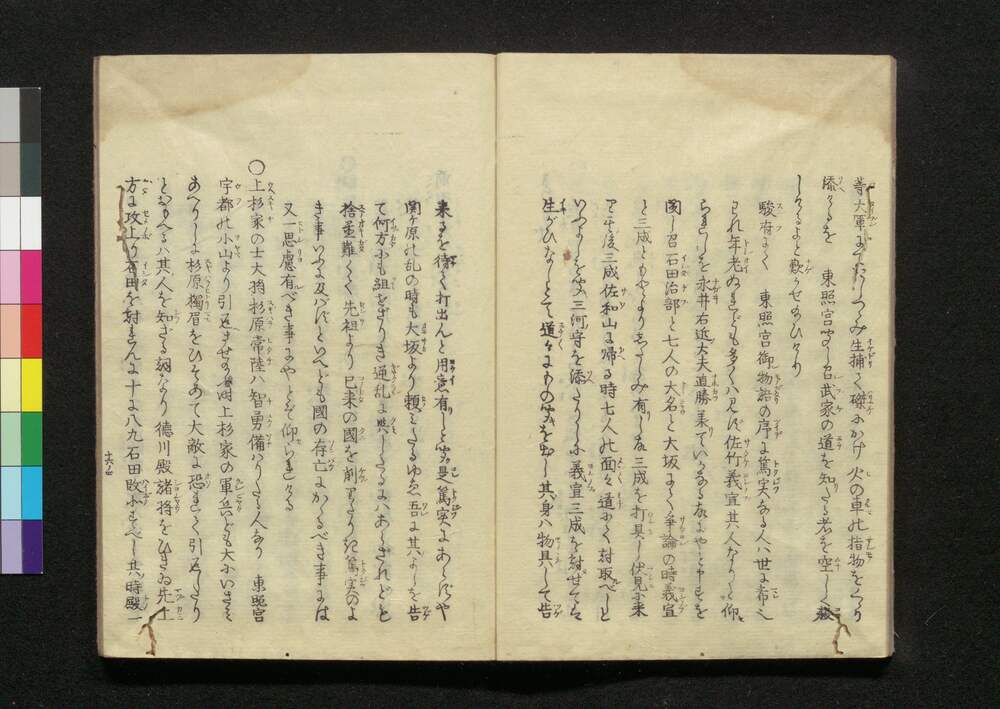 等大軍にて
生捕て磔にかけ 火の車の指物を
添 東照宮 召 武家の道を知たる者を空しく殺
しけるよと歎かせ給ひけり
駿府にて 東照宮御物語の序に篤実なる人は世に希也
われ年老ぬれども多くは見ず佐竹義宣其人なりと仰
られしを永井右近大夫直勝承ていかなる故にやと申すを
聞し召石田治部と七人の大名と大坂にて争論の時義宣
と三成ともとよりしたしみ有し故三成を打具し伏見に来
て其後三成佐和山に帰る時七人の面々道にて討取べしと
いふよしを聞三河守を添たりしに義宣三成を討せては
生がひなしとて道々にものゝ聞を出し其身は物具して告
来るを待て打出んと用意有しと聞是篤実にあらずや
関が原の乱の時も大坂より頼しとたるゆゑ吾に其よしを告
て何方にも組せざりき逆乱に与したるにはあらざれども
捨置難くて先祖より已来の国を削 篤実のよ
き事いふに及ばずといへども国の存亡にかゝるべき事には
又一思慮有べき事にやとぞ仰られける
○上杉家の士大将杉原常陸は智勇備はりたる人なり 東照宮
宇都の小山より引返させ給ふ時上杉家の軍兵ども大にいさみ
あへりしに杉原独眉をひそめて大敵に恐れて引返したり
とおもへるは其人を知ざる故なり徳川殿諸将をひきゐ先上
方に攻上り石田を討れんに十に八九石田敗北すべし其時殿一
十六ノ四